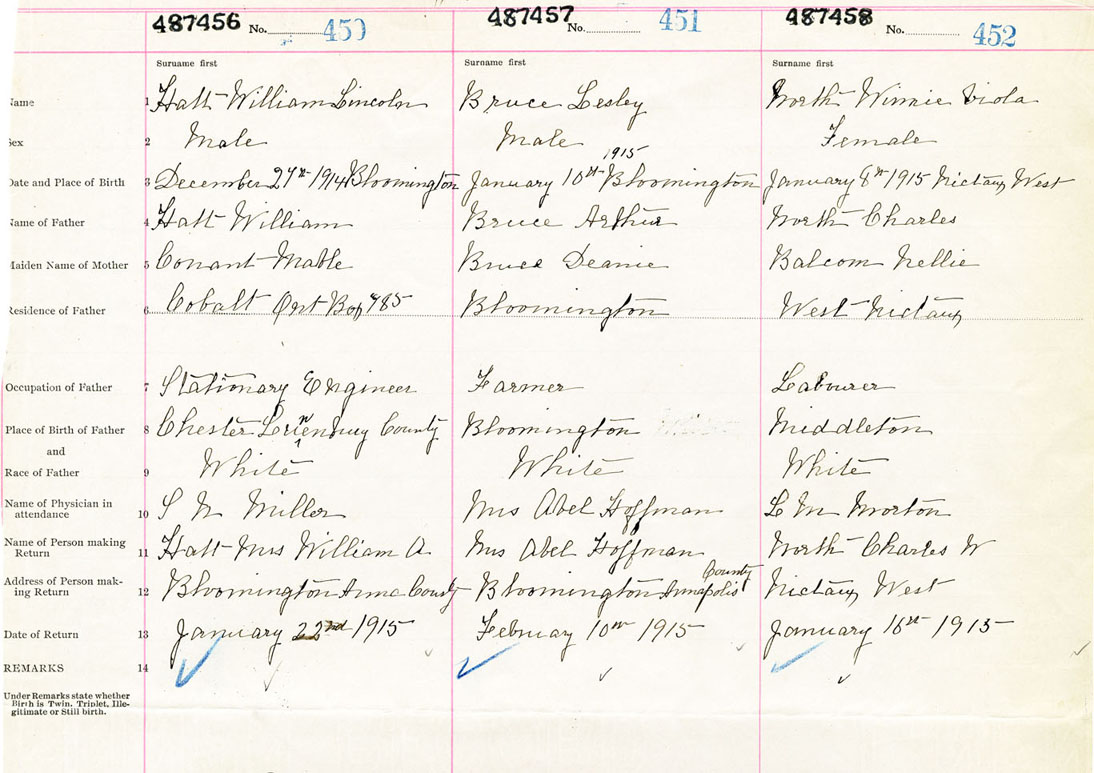 487456 No. 450 487457 No. 451 487458 No. 452
Surname first Surname first Surname first
Name 1 Hatt William Lincoln Bruce Lesley North Winnie Viola
Sex 2 Male Male Female
1915
Date and Place of Birth 3 December 27th 1914 Bloomington January 10th Bloomington January 8th 1915 Nictaux West
Name of Father 4 Hatt William Bruce Arthur North Charles
Maiden Name of Mother 5 Conant Mable Bruce Deanie Balcom Nellie
Residence of Father 6 Cobalt Ont Box 785 Bloomington West Nictaux
Occupation of Father 7 Stationary Engineer Farmer Labourer
Place of Birth of Father 8 Chester Luenburg County Bloomington Middleton
n
and
Race of Father 9 White White White
Name of Physician in
attendance 10 S N Miller Mrs Abel Hoffman L M Morton
Name of Person making
Return 11 Hatt Mrs William A. Mrs Abel Hoffman North Charles W
County
Address of Person mak-
ing Return 12 Bloomington Anna County Bloomington Annapolis Nictaux West
Date of Return 13 January 22nd 1915 February 10th 1915 January 16th 1915
REMARKS 14
Under Remarks state whether
Birth is Twin, Triplet, Ille-
gitimate or Still birth.